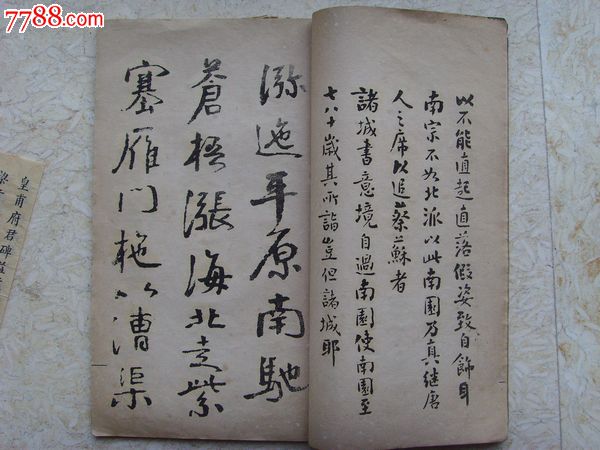 7788.com
热线
以不能直起直落假姿致自飾耳
南宗不如北派以此南園乃真継唐
人之席以追蔡蘇者
諸城書意境自過南園使南園至
七八十歲其所詣豈但諸城耶
瀰迤平原南馳
蒼梧漲海北走紫
塞雁門柂以漕渠
皇甫府君碑